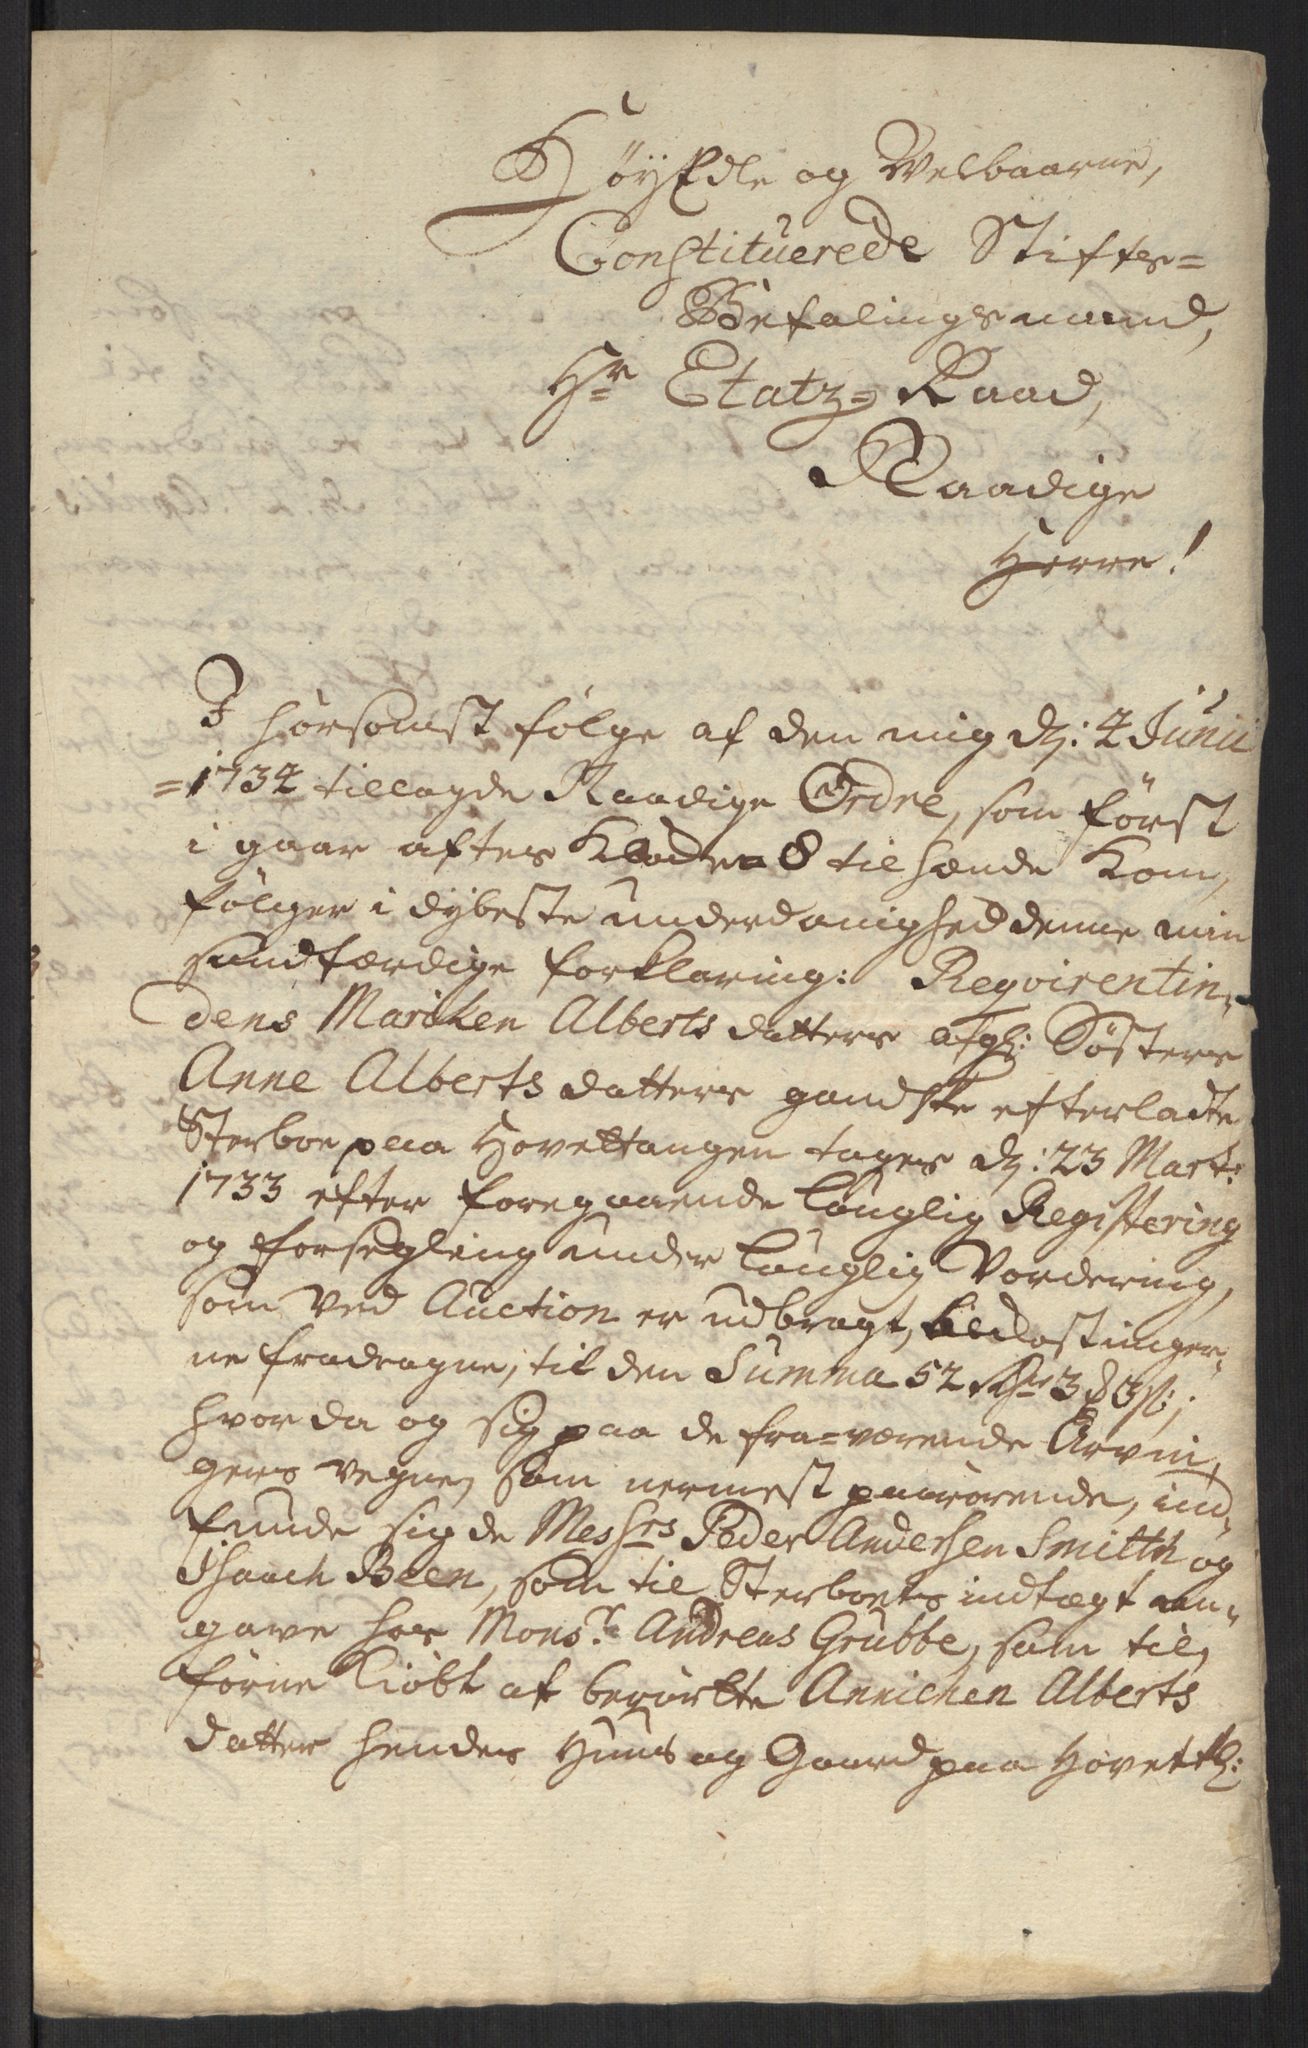 HöyEdle og Welbaarne,
Constituerede Stiftes=
Befalingsmand,
Hr Etatz=Raad,
Naadige
Herre!
I hørsomst følge af den mig dz: 4 Junii
=1734 tillagde Naadige Ordre, som först
i gaar aftes Kloche 8 til hænde Kom,
følger i dybeste underdanighed denne min
sandfærdige forklaring: Reqvirentin,
dens Maricken Alberts datters Sÿsters
Anne Alberts datters gandske efterladte
Sterboe paa Hovettangen toges dz: 23 Marti
1733 efter foregaaende louglig Registering
og forsegling under louglig Vordering,
som ved Auction er udbragt, bekostninger,,
ne fradragne, til den Summa 52 Rdr 3 ß;
hvor da og sig paa de fra=værende Arvin,
gers vegne, som nermest paarørende, ind,,
funde sig de Messrs Peder Andersen Smitth og
Isaach Been, som til Sterboets indtægt an,,
gave hos Monsr Andreas Grubbe, som til,
förne kiöbt af berörte Annichen Alberts
datter hendes Huus og Gaard paa Hovett: